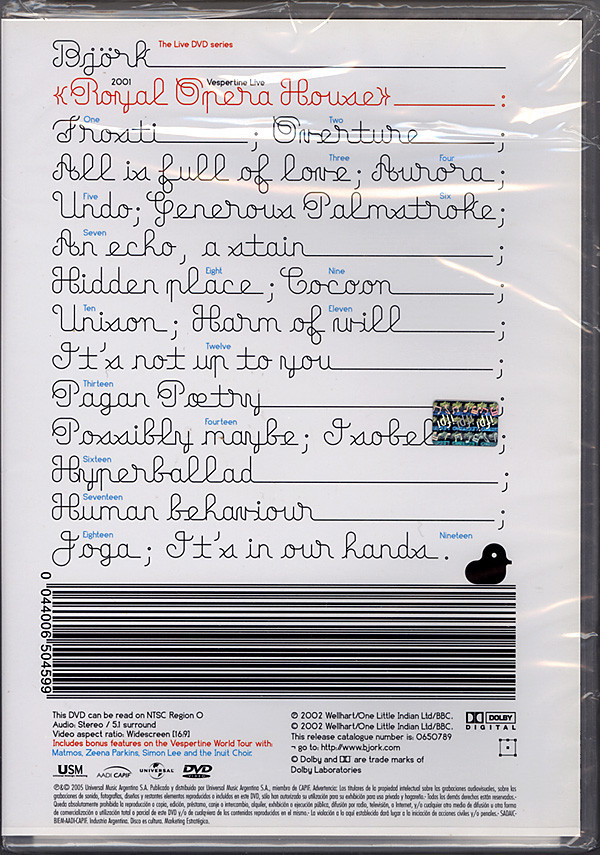 Björk The Live DVD series
2001 Vespertine Live
«Royal Opera House» :
One Two
Frosti ; Overture ;
Three Four
All is full of love; Aurora ;
Five Six
Undo; Generous Palmstroke;
Seven
An echo, a stain ;
Eight Nine
Hidden place ; Cocoon ;
Ten Eleven
Unison ; Harm of will ;
Twelve
It's not up to you ;
Thirteen
Pagan Poetry ;
Fourteen
Possibly maybe; Isobel ;
Sixteen
Hyperballad ;
Seventeen
Human behaviour ;
Eighteen Nineteen
Joga ; It's in our hands .
0 044006 504599
This DVD can be read on NTSC Region 0
Audio: Stereo / 5.1 surround
Video aspect ratio: Widescreen [16:9]
Includes bonus features on the Vespertine World Tour with:
Matmos, Zeena Parkins, Simon Lee and the Inuit Choir.
℗ 2002 Wellhart/One Little Indian Ltd/BBC.
© 2002 Wellhart/One Little Indian Ltd/BBC.
This release catalogue number is: 0650789
¬ go to: http://www.bjork.com
© Dolby and DD are trade marks of
Dolby Laboratories
DOLBY
DIGITAL
USM AADI CAPIF UNIVERSAL DVD
℗&© 2005 Universal Music Argentina S.A. Publicado y distribuido por Universal Music Argentina S.A., miembro de CAPIF. Advertencia: Los titulares de la propiedad intelectual sobre las grabaciones audiovisuales, sobre las
grabaciones de sonido, fotografías, diseños y restantes elementos reproducidos o incluidos en este DVD, sólo han autorizado su utilización para su exhibición para uso privado y hogareño.- Todos los demás derechos están reservados.-
Queda absolutamente prohibida la reproducción o copia, edición, préstamo, canje o intercambio, alquiler, exhibición o ejecución pública, difusión por radio, televisión, o Internet, y/o cualquier otro medio de difusión u otra forma
de comercialización o utilización total o parcial de este DVD y/o de cualquiera de los contenidos reproducidos en el mismo.- La violación a lo aquí establecido dará lugar a la iniciación de acciones civiles y/o penales.- SADAIC-
BIEM-AADI-CAPIF. Industria Argentina. Disco es cultura. Marketing Estratégico.